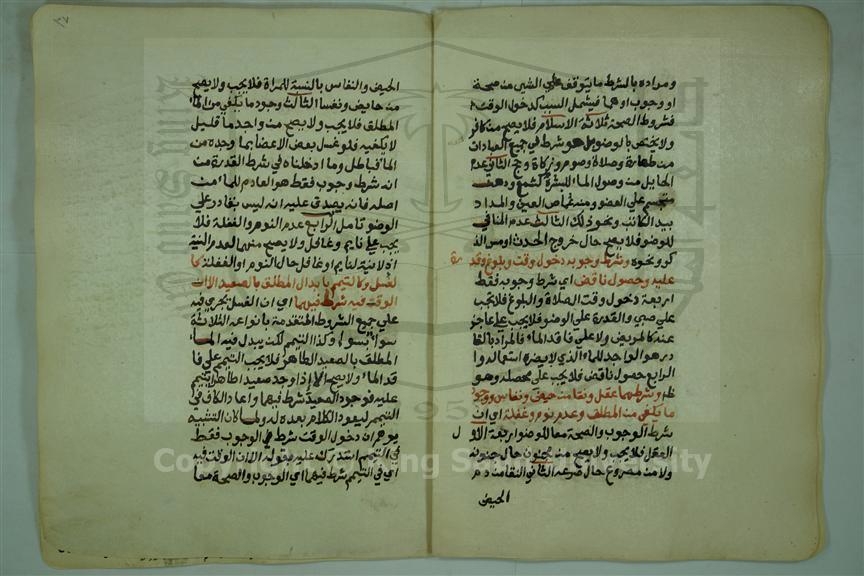 ومراده بالشرط ما يتوقف علي الشي من صحة
او وجوب او هما فيشمل السبب كدخول الوقت
فشروط الصحة ثلاثة الاسلام فلا يصح من كافر
ولا يختص بالوضو بل هو شرط في جميع العبادات
من طهارة وصلاة وصوم وزكاة وحج الثاني عدم
الحايل من وصول الماء للبشرة كشمع ودهن
متجسم علي العضو ومنه عماص العين والمداد
بيد الكاتب ونحو ذلك الثالث عدم المنافي
للوضو فلا يصح حال خروج الحدث او مس الذ
كر ونحوه وشرط وجوبه دخول وقت وبلوغ وقدرة
عليه وحصول ناقض اي شرط وجوبه فقط
اربعة دخول وقت الصلاة والبلوغ فلا يجب
علي صبي والقدرة علي الوضو فلا يجب علي عاجز
عنه كالمريض ولا علي فاقد الماء فالمراد بالقا
در هو الواجد للماء الذي لا يضره استعماله وا
الرابع حصول ناقض فلا يجب علي محصله وهو
ظ وشرطهما عقل ونقا من حيض ونفاس ووجود
ما يكفي من المطلق وعدم نوم وغفلة اي ان
شرط الوجوب والصحة معا للوضو اربعة الاول
العقل فلا يجب ولا يصح من مجنون حال جنونه
ولا من مصروع حال صرعه الثاني النقا من دم
الحيض
الحيض والنفاس بالنسبة للمراة فلا يجب ولا يصح
من حايض ونفسا الثالث وجود ما يكفي من الماء
المطلق فلا يجب ولا يصح من واجد ما قليل
لا يكفيه فلو غسل بعض الاعضا بما وجده من
الماء فباطل وما ادخلناه في شرط القدرة من
انه شرط وجوب فقط هو العادم للماء من
اصله فانه يصدق عليه انه ليس بقادر علي
الوضو تامل الرابع عدم النوم والغفلة فلا
يجب علي نايم وغافل ولا يصح منهما لعدم النية
اذ لا نية لنايم او غافل حال النوم او الغفلة كا
لغسل وكالتيمم بابدال المطلق بالصعيد الا ان
الوقت فيه شرط فيهما اي ان الغسل يجري فيه
علي جميع الشروط المتقدمة بانواعه الثلاثة
سوا بسوا وكذا التيمم لكن يبدل فيه الماء
المطلق بالصعيد الطاهر فلا يجب التيمم علي فا
قد الماء ولا يصح الا اذا وجد صعيدا طاهرا يتيمم
عليه فوجود الصعيد شرط فيهما واعاد الكاف في
التيمم ليعود الكلام بعده له ولما كان التشبيه
يوهم ان دخول الوقت شرط في الوجوب فقط
في التيمم استدرك عليه بقوله الا ان الوقت فيه
اي في التيمم شرط فيهما اي الوجوب والصحة معا